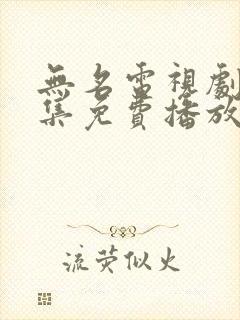 無名電視劇
集免費播放
流萤似火